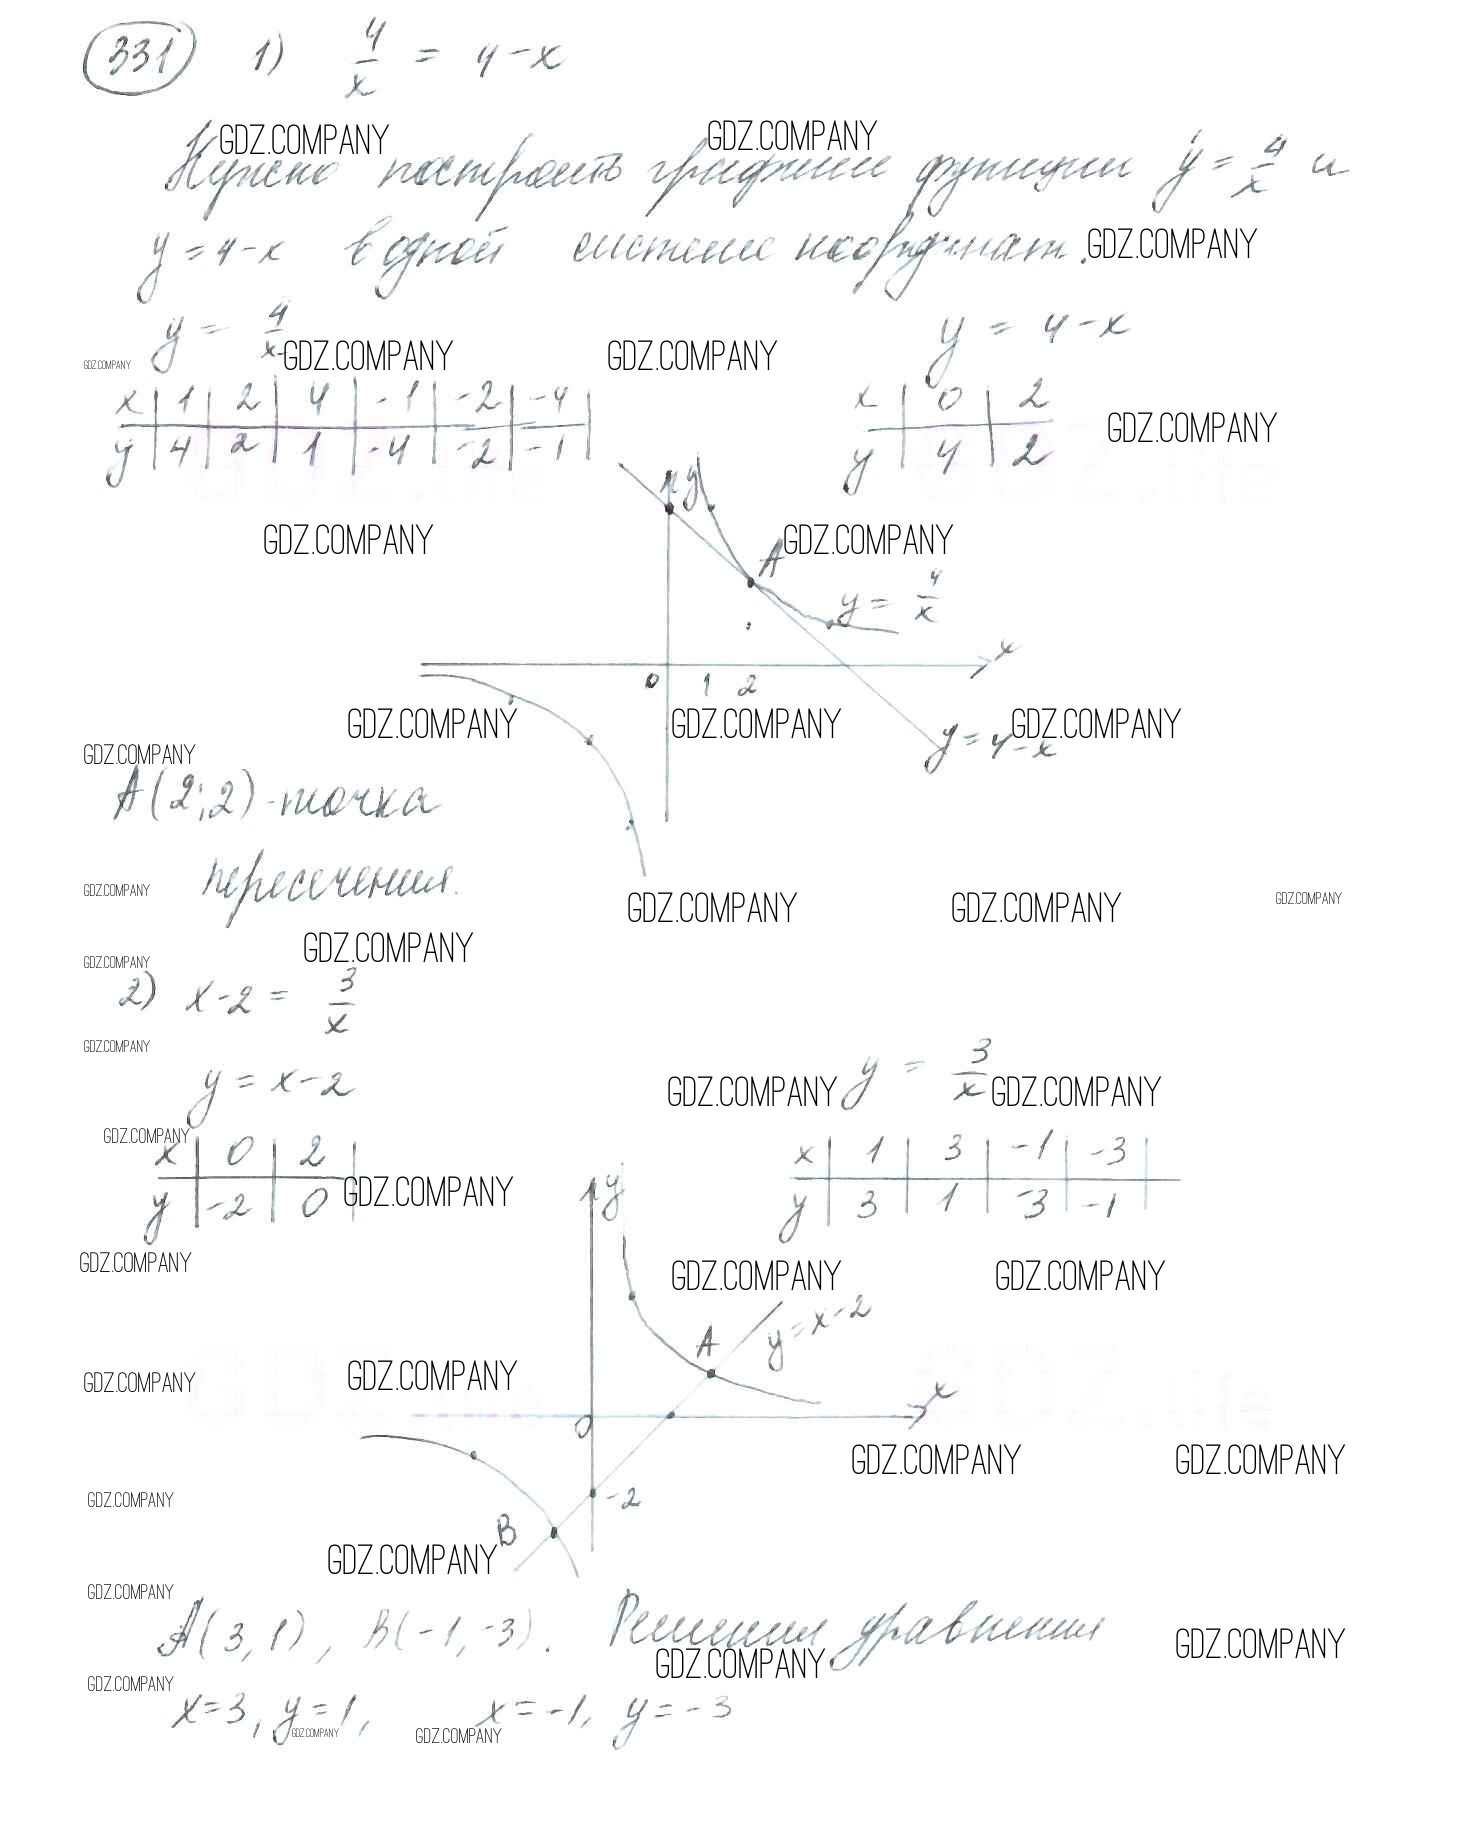 331 1) 4/x = 4-x
GDZ.COMPANY GDZ.COMPANY
Нужно построить графики функции y = 4/x и
y = 4-x в одной системе координат. GDZ.COMPANY
y = 4/x y = 4-x
GDZ.COMPANY GDZ.COMPANY GDZ.COMPANY
x | 1 | 2 | 4 | -1 | -2 | -4 | x | 0 | 2
y | 4 | 2 | 1 | -4 | -2 | -1 | y | 4 | 2
GDZ.COMPANY
y
GDZ.COMPANY GDZ.COMPANY
A
y = 4/x
x
0 1 2
GDZ.COMPANY GDZ.COMPANY GDZ.COMPANY
y = 4-x
GDZ.COMPANY
A(2;2) - точка
пересечения.
GDZ.COMPANY GDZ.COMPANY GDZ.COMPANY GDZ.COMPANY
GDZ.COMPANY
GDZ.COMPANY
2) x-2 = 3/x
GDZ.COMPANY
y = x-2 y = 3/x
GDZ.COMPANY GDZ.COMPANY
GDZ.COMPANY
x | 0 | 2 | x | 1 | 3 | -1 | -3 |
y | -2 | 0 | y | 3 | 1 | -3 | -1 |
GDZ.COMPANY
y
GDZ.COMPANY GDZ.COMPANY GDZ.COMPANY
A y = x-2
GDZ.COMPANY GDZ.COMPANY
x
0
GDZ.COMPANY GDZ.COMPANY
-2
GDZ.COMPANY
B
GDZ.COMPANY
GDZ.COMPANY
A(3,1), B(-1,-3). Решения уравнения
GDZ.COMPANY GDZ.COMPANY
GDZ.COMPANY
x=3, y=1, x=-1, y=-3
GDZ.COMPANY GDZ.COMPANY